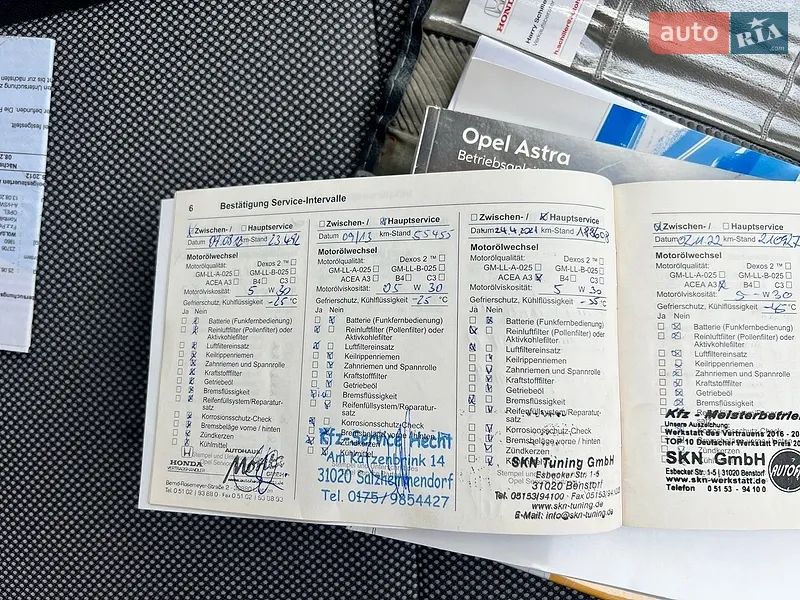 auto RIA .com
HONDA
Harry Schiller
Opel Astra
Betriebsanleitung
6 Bestätigung Service-Intervalle
Zwischen- / Hauptservice
Datum 07.08.12 km-Stand 23.492
Motorölwechsel
Motorölqualität: Dexos 2 ™
GM-LL-A-025 GM-LL-B-025
ACEA A3 B4 C3
Motorölviskosität: 5 W 30
Gefrierschutz, Kühlflüssigkeit -25 °C
Ja Nein
Batterie (Funkfernbedienung)
Reinluftfilter (Pollenfilter) oder
Aktivkohlefilter
Luftfiltereinsatz
Keilrippenriemen
Zahnriemen und Spannrolle
Kraftstofffilter
Getriebeöl
Bremsflüssigkeit
Reifenfüllsystem/Reparatur-
satz
Korrosionsschutz-Check
Bremsbeläge vorne / hinten
Zündkerzen
Kühlmittel
HONDA
VERTRAGSHÄNDLER
AUTOHAUS
Bernd-Rosemeyer-Straße 2
Fon 0 51 02 / 93 88 0 · Fax 0 51 02 /
Zwischen- / Hauptservice
Datum 09/13 km-Stand 55455
Motorölwechsel
Motorölqualität: Dexos 2 ™
GM-LL-A-025 GM-LL-B-025
ACEA A3 B4 C3
Motorölviskosität: 05 W 30
Gefrierschutz, Kühlflüssigkeit -25 °C
Ja Nein
Batterie (Funkfernbedienung)
Reinluftfilter (Pollenfilter) oder
Aktivkohlefilter
Luftfiltereinsatz
Keilrippenriemen
Zahnriemen und Spannrolle
Kraftstofffilter
Getriebeöl
Bremsflüssigkeit
Reifenfüllsystem/Reparatur-
satz
Korrosionsschutz-Check
Bremsbeläge vorne / hinten
Zündkerzen
Kühlmittel
Kfz-Service Hecht
Am Katzenbrink 14
31020 Salzhemmendorf
Tel. 0175/9854427
Zwischen- / Hauptservice
Datum 24.4.2021 km-Stand
Motorölwechsel
Motorölqualität: Dexos 2 ™
GM-LL-A-025 GM-LL-B-025
ACEA A3 B4 C3
Motorölviskosität: 5 W 30
Gefrierschutz, Kühlflüssigkeit -35 °C
Ja Nein
Batterie (Funkfernbedienung)
Reinluftfilter (Pollenfilter) oder
Aktivkohlefilter
Luftfiltereinsatz
Keilrippenriemen
Zahnriemen und Spannrolle
Kraftstofffilter
Getriebeöl
Bremsflüssigkeit
Reifenfüllsystem/Reparatur-
satz
Korrosionsschutz-Check
Bremsbeläge vorne / hinten
Zündkerzen
SKN Tuning GmbH
Esbecker Str. 1-5
31020 Benstorf
Tel. 05153/94100 · Fax 05153/94
www.skn-tuning.de
E-Mail: info@skn-tuning.
Zwischen- / Hauptservice
Datum 02.11.22 km-Stand 210927
Motorölwechsel
Motorölqualität: Dexos 2
GM-LL-A-025 GM-LL-B-025
ACEA A3 B4 C3
Motorölviskosität: 5 W 30
Gefrierschutz, Kühlflüssigkeit -45 °C
Ja Nein
Batterie (Funkfernbedienung)
Reinluftfilter (Pollenfilter) oder
Aktivkohlefilter
Luftfiltereinsatz
Keilrippenriemen
Zahnriemen und Spannrolle
Kraftstofffilter
Getriebeöl
Bremsflüssigkeit
Kfz - Meisterbetrieb
Unsere Auszeichnung:
Werkstatt des Vertrauens 2016 - 20
TOP 10 Deutscher Werkstatt Preis 20
SKN GmbH
Esbecker Str. 1-5 | 31020 Benstorf
www.skn-werkstatt.de
Telefon 0 51 53 - 94 10 0